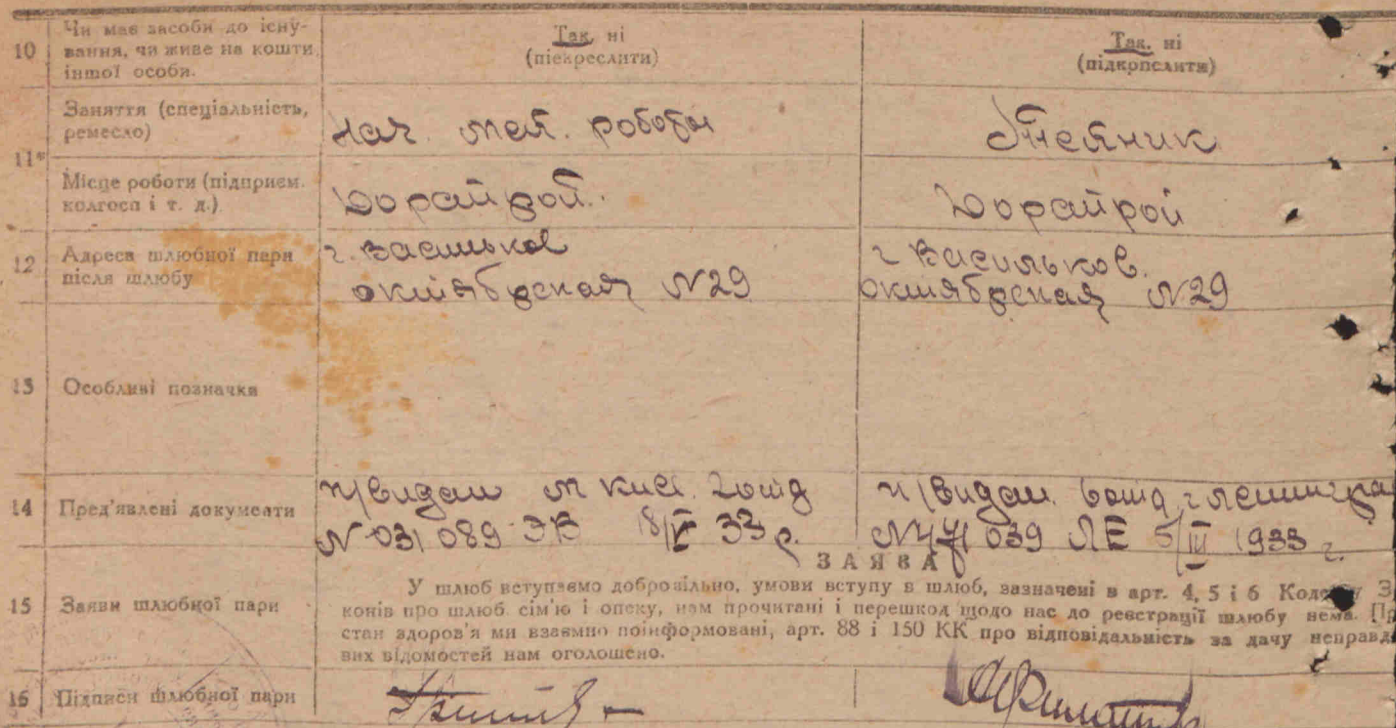 10 Чи має засоби до існу-
вання, чи живе на кошти
іншої особи.
Так, ні
(підкреслити)
Так, ні
(підкреслити)
11*
Заняття (спеціальність,
ремесло)
нач. роботи
Місце роботи (підприєм.
колгосп і т. д.)
12 Адреса шлюбної пари
після шлюбу
г. Васильков
октябрская N29
г Васильков.
октябрская N29
13 Особливі позначка
14 Пред'явлені документи
п/видан м Киев.
N 031 089 ЭВ 33 р.
п/видан. г Ленинград
039 ЛЕ 5/III 1933 г.
15 Заяви шлюбної пари
ЗАЯВА
У шлюб вступаємо добровільно, умови вступу в шлюб, зазначені в арт. 4, 5 і 6 З
конів про шлюб сім'ю і опеку, нам прочитані і перешкод щодо нас до реєстрації шлюбу нема. Пр
стан здоров'я ми взаємно поінформовані, арт. 88 і 150 КК про відповідальність за дачу неправд
вих відомостей нам оголошено.
16 Підписи шлюбної пари